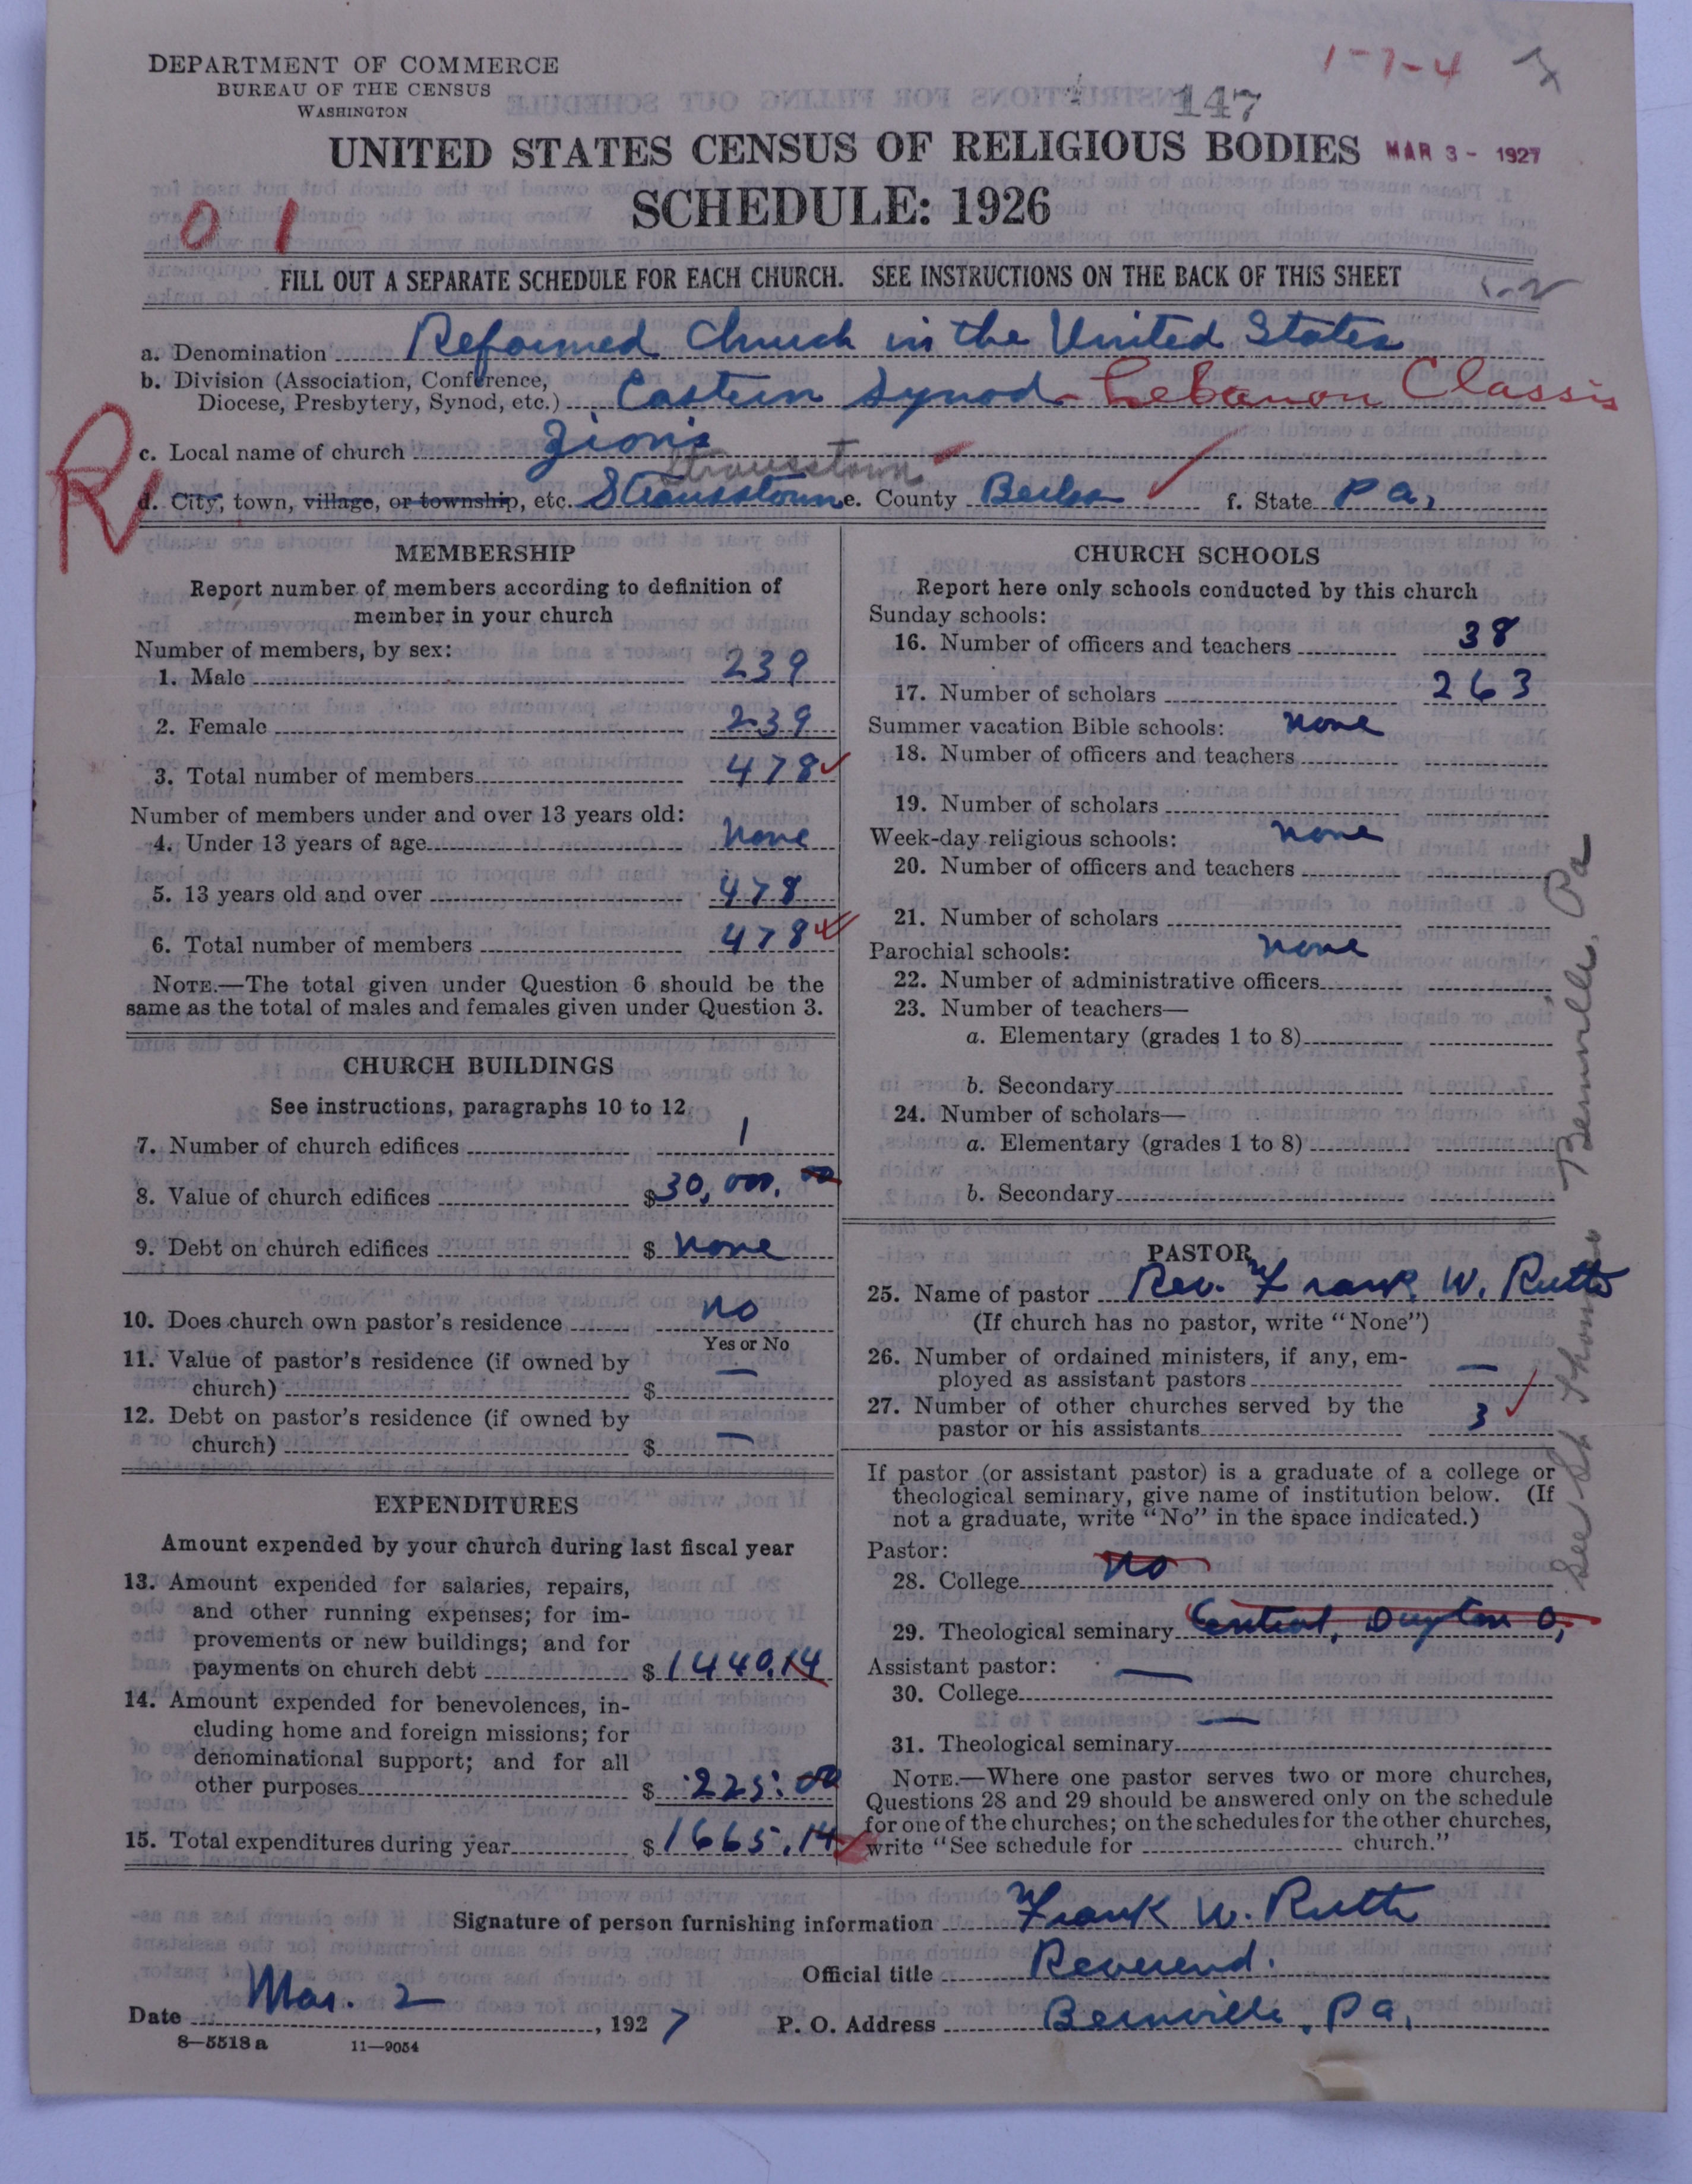 DEPARTMENT OF COMMERCE
BUREAU OF THE CENSUS
WASHINGTON
1-7-4
147
UNITED STATES CENSUS OF RELIGIOUS BODIES
MAR 3 - 1927
SCHEDULE: 1926
0 1
FILL OUT A SEPARATE SCHEDULE FOR EACH CHURCH. SEE INSTRUCTIONS ON THE BACK OF THIS SHEET
a. Denomination Reformed Church in the United States
b. Division (Association, Conference,
Diocese, Presbytery, Synod, etc.) Eastern Synod - Lebanon Classis
c. Local name of church Zion's
Strausstown
d. City, town, village, or township, etc. Strausstown e. County Berks f. State Pa.
MEMBERSHIP
Report number of members according to definition of
member in your church
Number of members, by sex:
1. Male 239
2. Female 239
3. Total number of members 478
Number of members under and over 13 years old:
4. Under 13 years of age none
5. 13 years old and over 478
6. Total number of members 478
NOTE.—The total given under Question 6 should be the
same as the total of males and females given under Question 3.
CHURCH BUILDINGS
See instructions, paragraphs 10 to 12
7. Number of church edifices 1
8. Value of church edifices $30,000.00
9. Debt on church edifices $ none
10. Does church own pastor's residence no
Yes or No
11. Value of pastor's residence (if owned by
church) $ —
12. Debt on pastor's residence (if owned by
church) $ —
EXPENDITURES
Amount expended by your church during last fiscal year
13. Amount expended for salaries, repairs,
and other running expenses; for im-
provements or new buildings; and for
payments on church debt $1440.14
14. Amount expended for benevolences, in-
cluding home and foreign missions; for
denominational support; and for all
other purposes $ 225.00
15. Total expenditures during year $1665.14
CHURCH SCHOOLS
Report here only schools conducted by this church
Sunday schools:
16. Number of officers and teachers 38
17. Number of scholars 263
Summer vacation Bible schools: none
18. Number of officers and teachers
19. Number of scholars
Week-day religious schools: none
20. Number of officers and teachers
21. Number of scholars
Parochial schools: none
22. Number of administrative officers
23. Number of teachers—
a. Elementary (grades 1 to 8)
b. Secondary
24. Number of scholars—
a. Elementary (grades 1 to 8)
b. Secondary
PASTOR
25. Name of pastor Rev. Frank W. Ruth
(If church has no pastor, write "None")
26. Number of ordained ministers, if any, em-
ployed as assistant pastors —
27. Number of other churches served by the
pastor or his assistants 3
If pastor (or assistant pastor) is a graduate of a college or
theological seminary, give name of institution below. (If
not a graduate, write "No" in the space indicated.)
Pastor:
28. College no
29. Theological seminary Central, Dayton O.
Assistant pastor: —
30. College
—
31. Theological seminary
NOTE.—Where one pastor serves two or more churches,
Questions 28 and 29 should be answered only on the schedule
for one of the churches; on the schedules for the other churches,
write "See schedule for church."
See St Thomas Bernville, Pa
Signature of person furnishing information Frank W. Ruth
Official title Reverend.
Date Mar. 2, 1927 P. O. Address Bernville, Pa.
8—5518 a 11—9054